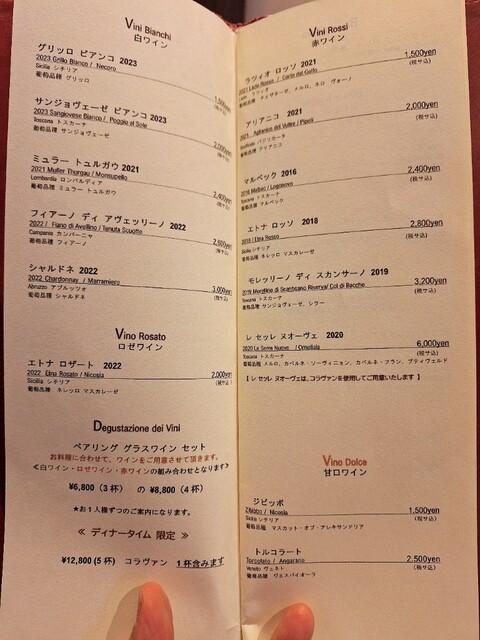 Vini Bianchi
白ワイン
グリッロ ビアンコ 2023
2023 Grillo Bianco / Necoro
Sicilia シチリア
葡萄品種 グリッロ
サンジョヴェーゼ ビアンコ 2023
2023 Sangiovese Bianco / Poggio al Sole
Toscana トスカーナ
葡萄品種 サンジョヴェーゼ
ミュラー トュルガウ 2021
2021 Muller Thurgau / Monsupello
2,400yen
Lombardia ロンバルディア
葡萄品種 ミュラー トュルガウ
フィアーノ ディ アヴェッリーノ 2022
2022 / Fiano di Avellino / Tenuta Scuotto
2,600yen
Campania カンパーニャ
葡萄品種 フィアーノ
シャルドネ 2022
2022 Chardonnay / Marramiero
3,000yen
(税サ込)
Abruzzo アブルッツォ
葡萄品種 シャルドネ
Vino Rosato
ロゼワイン
エトナ ロザート 2022
2022 Etna Rosato / Nicosia
2,000yen
(税サ込)
Sicilia シチリア
葡萄品種 ネレッロ マスカレーゼ
Degustazione dei Vini
ペアリング グラスワイン セット
お料理に合わせて、ワインをご用意させて頂きます。
≪白ワイン・ロゼワイン・赤ワインの組み合わせとなります≫
¥6,800 (3杯) の ¥8,800 (4杯)
★お1人様ずつのご案内になります。
≪ ディナータイム 限定 ≫
¥12,800 (5杯) コラヴァン 1杯含みます
Vini Rossi
赤ワイン
ラツィオ ロッソ 2021
1,500yen
(税サ込)
ラツィオ
アリアニコ 2021
2,000yen
(税サ込)
2021 Aglianico del Vulture / Pipoli
バジリカータ
葡萄品種 アリアニコ
マルベック 2016
2,400yen
(税サ込)
2016 Malbec /
Toscana トスカーナ
葡萄品種 マルベック
エトナ ロッソ 2018
2,800yen
(税サ込)
2018 / Etna Rosso
Sicilia シチリア
葡萄品種 ネレッロ マスカレーゼ
モレッリーノ ディ スカンサーノ 2019
3,200yen
(税サ込)
2019 Morellino di Scansano Riserva/ Col di Bacche
Toscana トスカーナ
葡萄品種 サンジョヴェーゼ、シラー
レ セッレ ヌオーヴェ 2020
6,000yen
(税サ込)
2020 Le Serre Nuove / Ornellaia
Toscana トスカーナ
葡萄品種 メルロ、カベルネ・ソーヴィニョン、カベルネ・フラン、プティヴェルド
【 レ セッレ ヌオーヴェは、コラヴァンを使用してご用意いたします 】
Vino Dolce
甘口ワイン
ジビッボ
1,500yen
(税サ込)
Zibibbo / Nicosia
Sicilia シチリア
葡萄品種 マスカット・オブ・アレキサンドリア
トルコラート
2,500yen
(税サ込)
Torcolato / Angarano
Veneto ヴェネト
葡萄品種 ヴェスパイオーラ